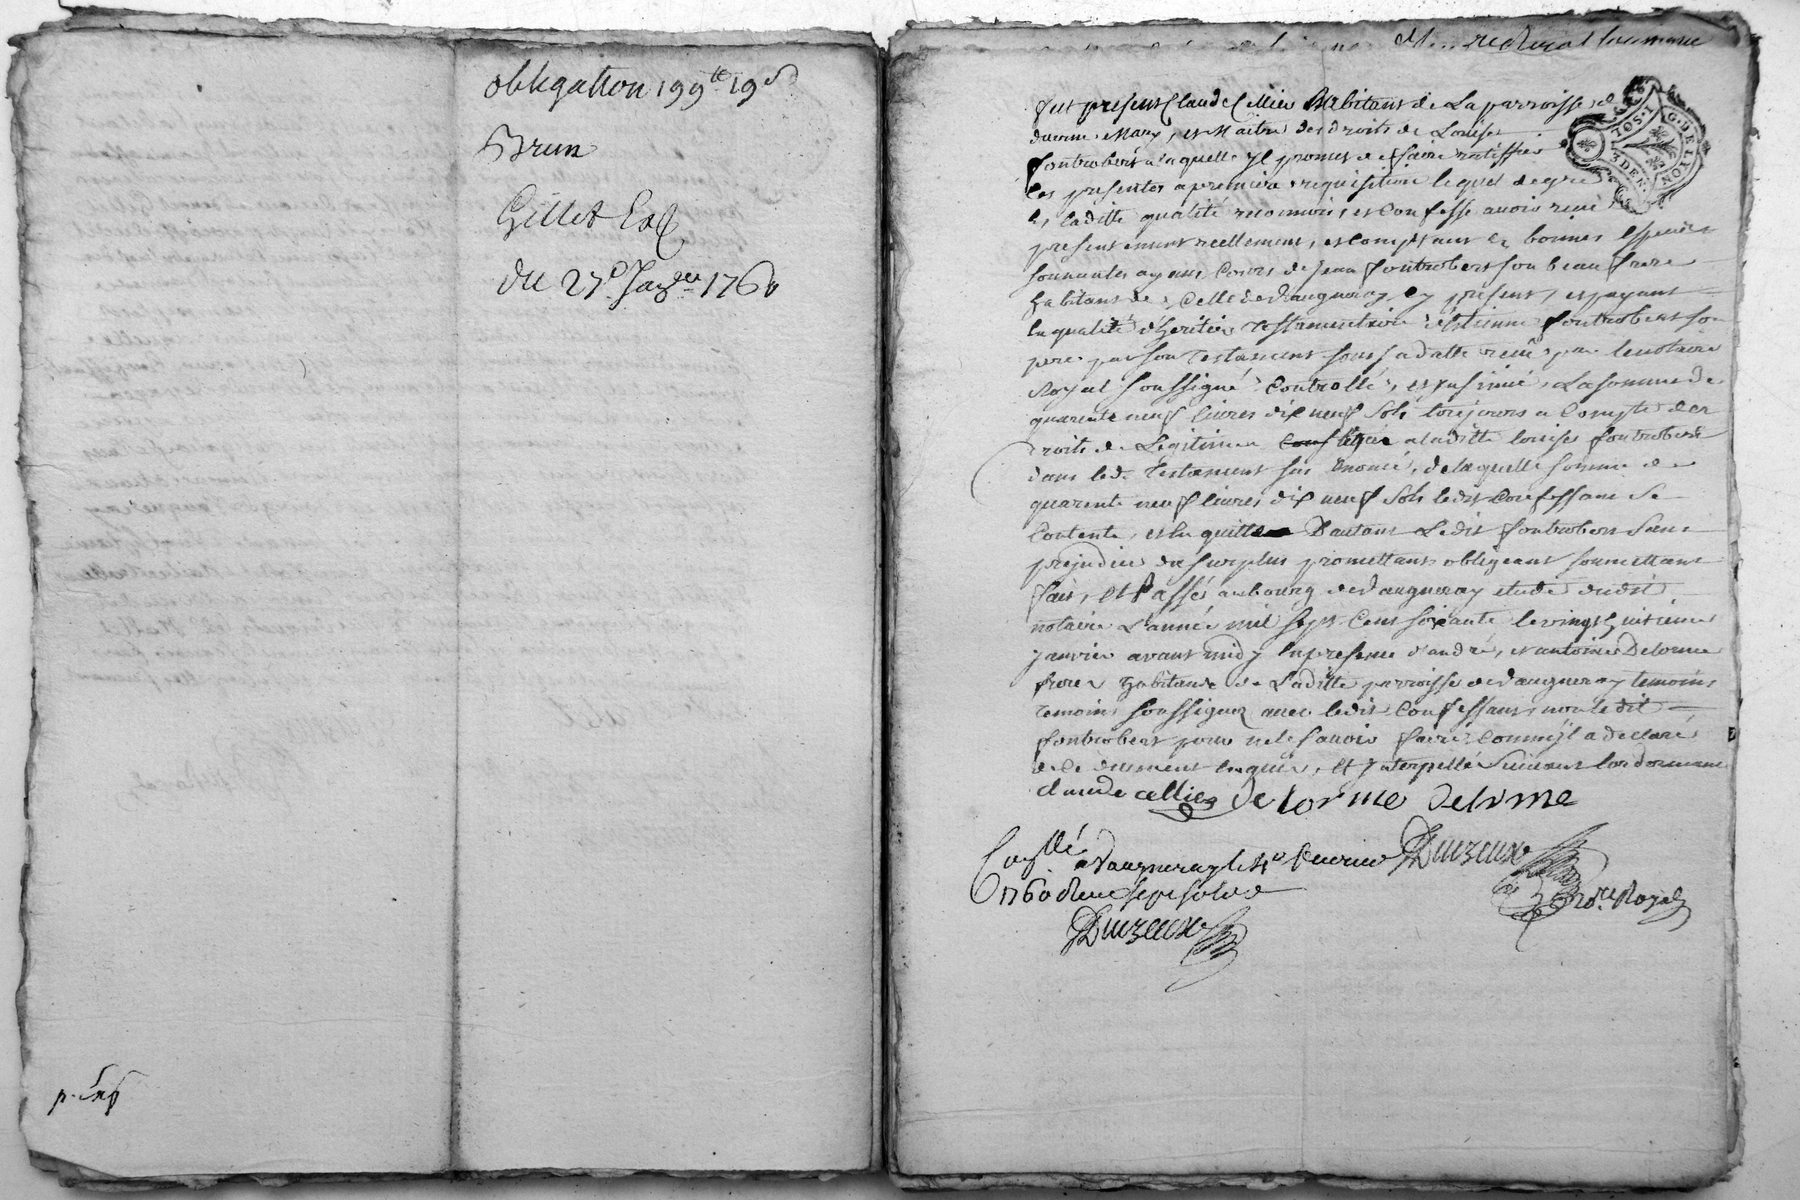 obligation 199ᵗᵗ 19ˢ
Brun
Gillet
du 27ᵉ Janᵉʳ 1760
fut present Claude Cellier habitant de La parroisse de
et Maitre des droits de Louise
fontrobert a laquelle yl promet de faire ratiffier
les presentes a premiere requisition lequel de gré
en laditte qualité reconnoit et Confesse avoir receu
presentement reellement, et comptant en bonnes especes
sonnantes ayant Cours de Jean fontrobert son beau frere
habitant de Celle de Vaugneray cy present, et payant
en qualité d'heritier Testamentaire d'Estienne fontrobert son
pere par son Testament sous sa datte receu par le notaire
Royal soussigné Controllé, et insinué, La somme de
quarente neuf livres dix neuf sols toujours a Compte des
droits de Legitime a laditte louise fontrobert
dans led. Testament sus enoncé, de laquelle somme de
quarente neuf livres dix neuf sols ledit Confessant se
Contente, et en quitte D'autant Ledit fontrobert sans
prejudice du surplus promettant obligeant soumettant
fait, et Passé au bourg de Vaugneray etude dudit
notaire L'année mil sept Cent soixante le vingt huitieme
janvier avant midy en presence d'andré, et antoine Delorme
freres habitants de Laditte parroisse de Vaugneray temoins
temoins soussignez avec ledit Confessant, non le dit
fontrobert pour ne le savoir faire Comm'yl a declaré
de ce duement enquis, et Interpellé Suivant l'ordonnance
claude cellier de lorme delorme
Conᵗˡˡᵉ́
a Vaugneray le 4ᵉ fevrier
1760 Receu sept sols
Duzeux
Duzeux
nʳᵉ. Royal
G. DE LION
3 DEN.